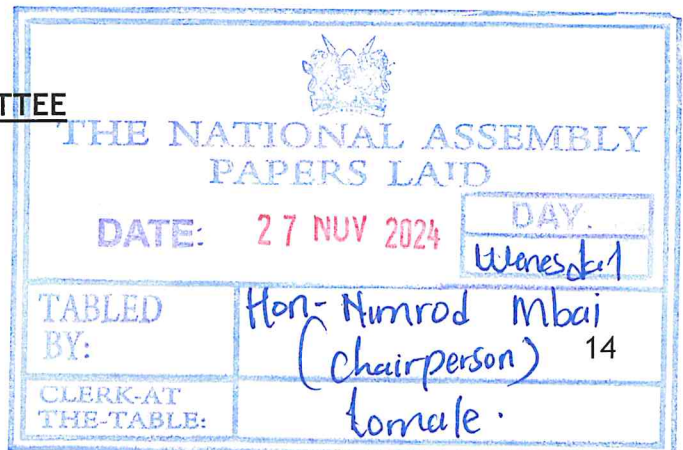 TTEE
THE NATIONAL ASSEMBLY
PAPERS LAID
DATE: 27 NOV 2024
DAY.
Wenesday
TABLED BY:
Hon- Nimrod Mbai
(Chairperson) 14
CLERK-AT THE-TABLE: